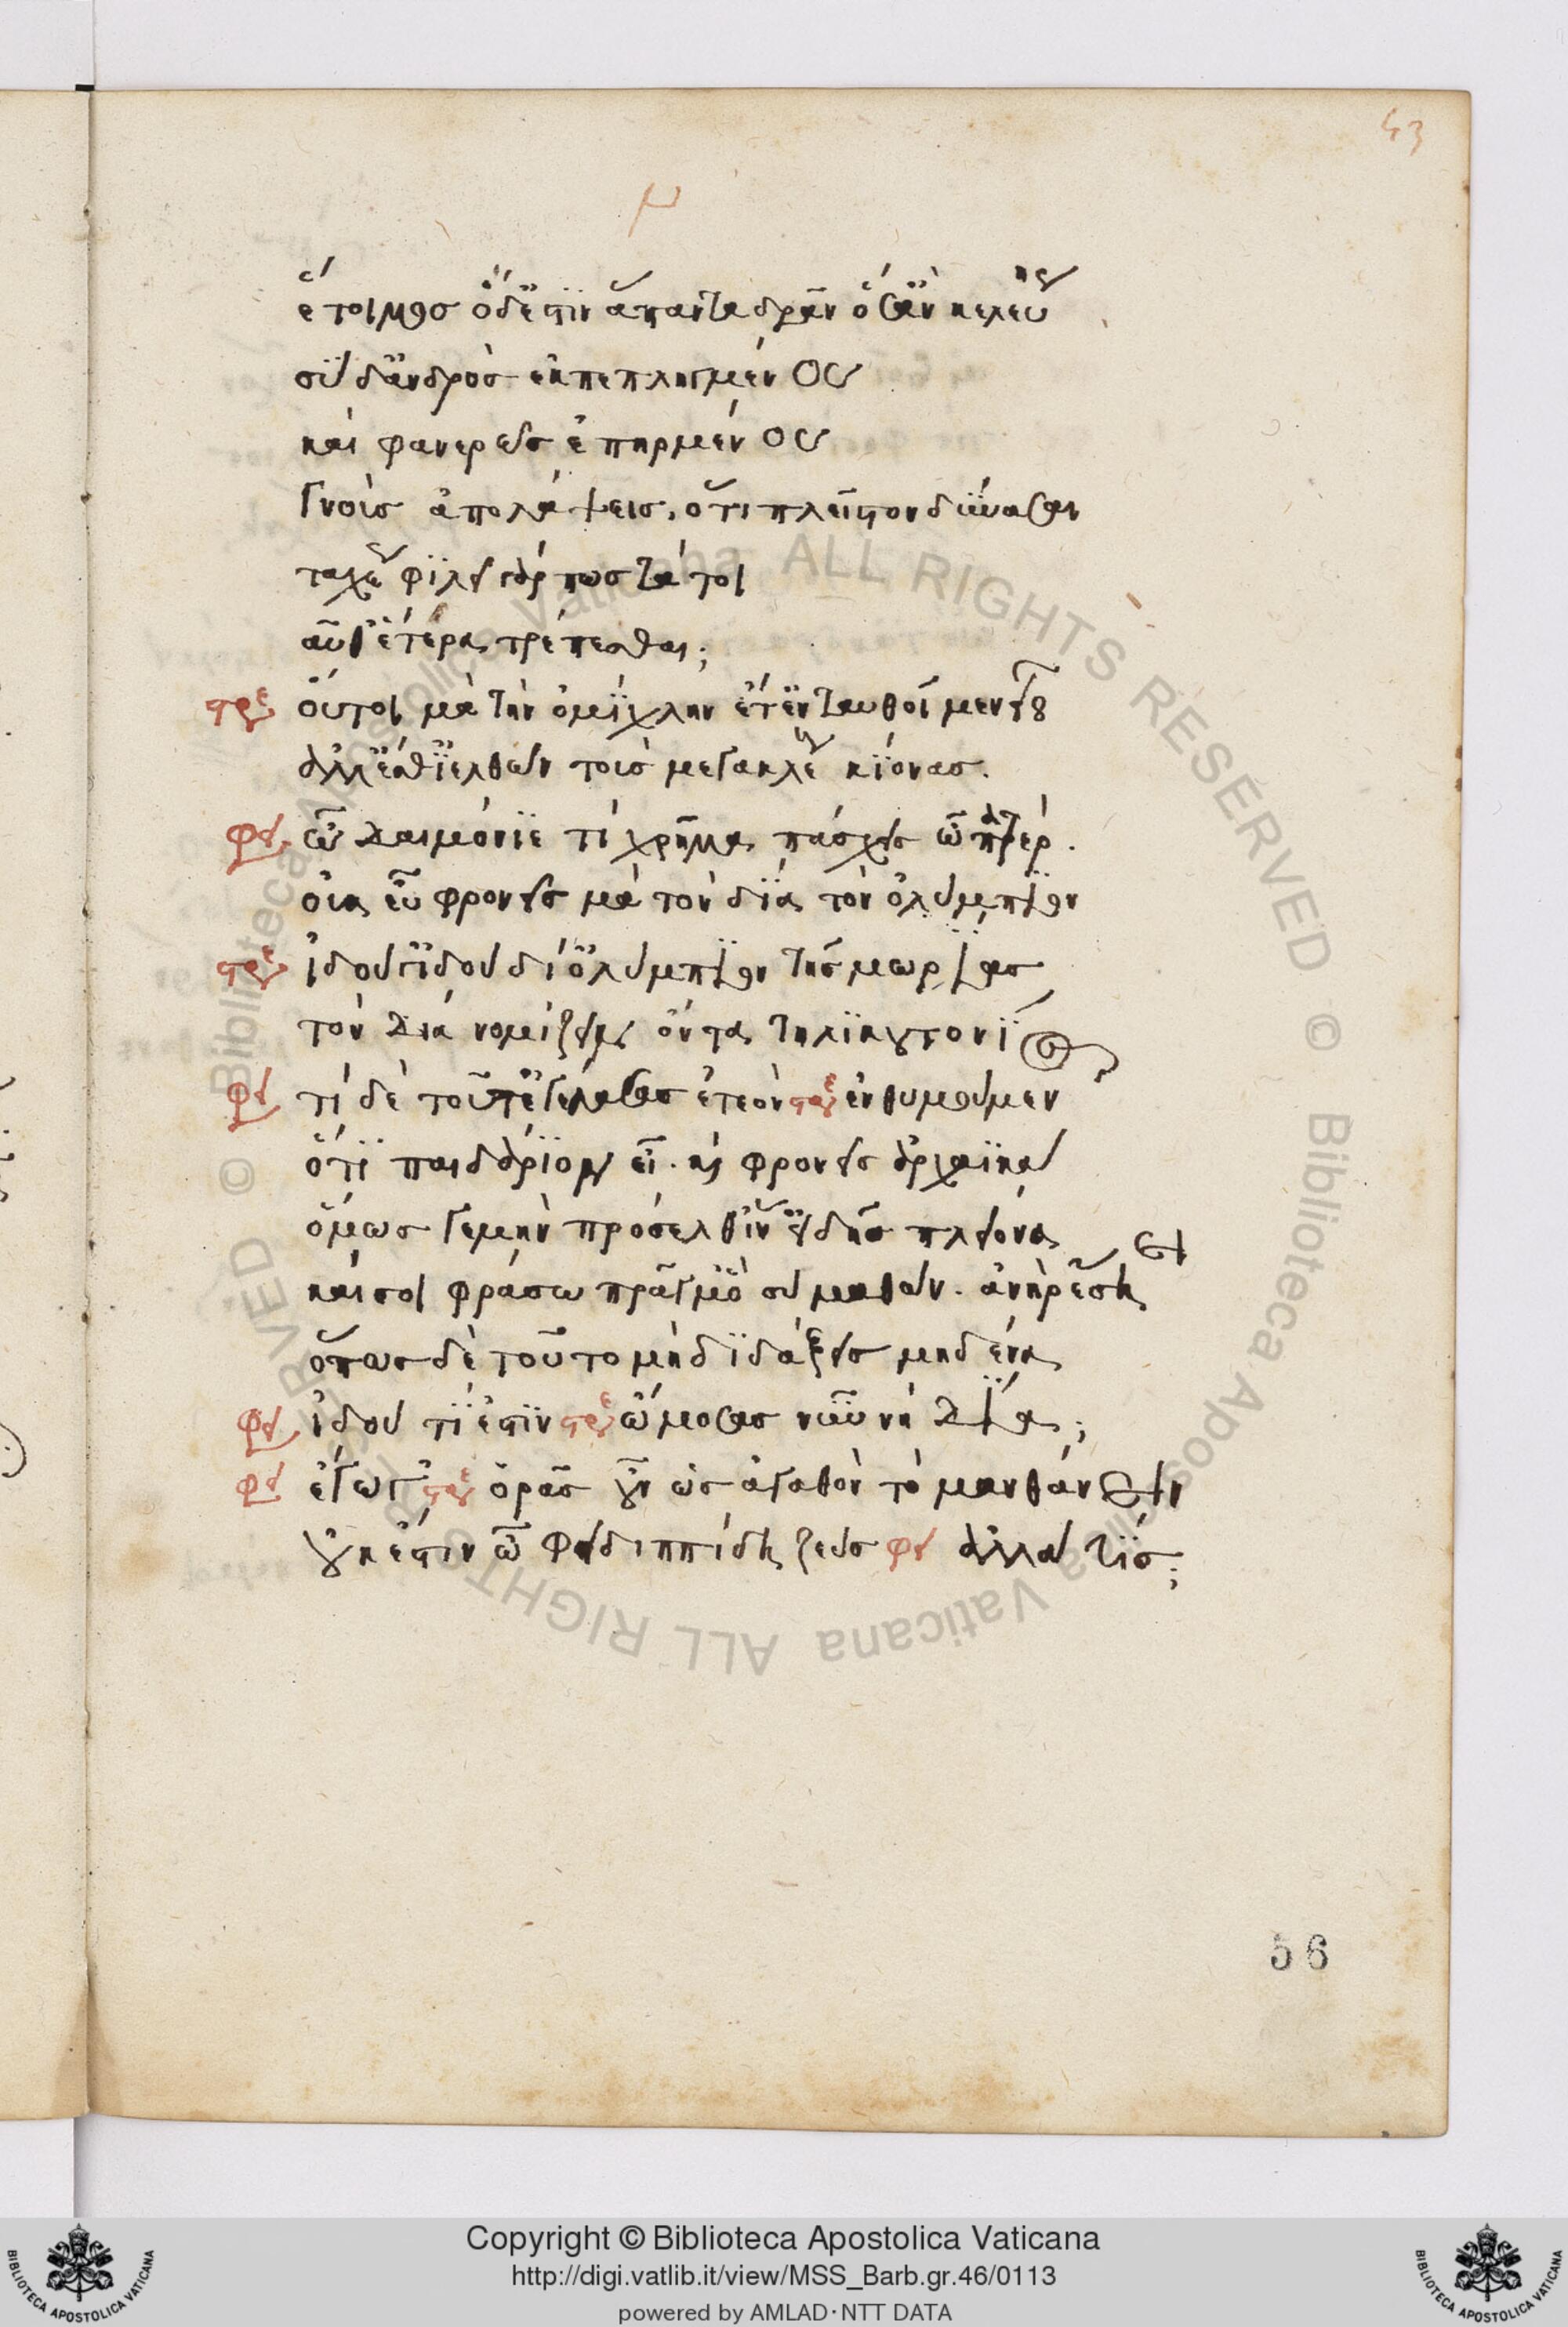 43
μ
ἕτοιμος ὅδ' ἐστὶν ἅπαντα δρᾶν ὅσ' ἂν κελεύῃς
σὺ δ' ἀνδρὸς ἐκπεπληγμένος
καὶ φανερῶς ἐπηρμένος
γνοὺς ἀπολάψεις, ὅτι πλεῖστον δύνασαι
ταχέως φιλεῖ γάρ πως τὰ τοι
αῦθ' ἑτέρᾳ τρέπεσθαι;
στρε οὔτοι μὰ τὴν ὁμίχλην ἔτ' ἐνταυθοῖ μενεῖς
ἀλλ' ἔσθι' ἐλθὼν τοὺς μεγακλέους κίονας.
φει ὦ δαιμόνιε τί χρῆμα πάσχεις ὦ πάτερ.
οὐκ εὖ φρονεῖς μὰ τὸν δία τὸν ὀλύμπιον
στρε ἰδού γ' ἰδοὺ δί' ὀλύμπιον τῆς μωρίας
τὸν δία νομίζειν ὄντα τηλικουτονί
φει τί δὲ τοῦτ' ἐγέλασας ἐτεόν στρε ἐνθυμούμενος
ὅτι παιδάριον εἶ. καὶ φρονεῖς ἀρχαϊκά
ὅμως γε μὴν πρόσελθ' ἵν' εἰδῇς πλείονα
καί σοι φράσω πρᾶγμ' ὃ σὺ μαθὼν. ἀνὴρ ἔσῃ
ὅπως δὲ τοῦτο μὴ διδάξεις μηδένα
φει ἰδού τί ἐστιν στρε ὤμοσας νῦν νὴ δία;
φει ἔγωγ' στρε ὁρᾷς οὖν ὡς ἀγαθὸν τὸ μανθάνειν
οὐκ ἔστιν ὦ Φειδιππίδη ζεύς φει ἀλλὰ τίς;
56
© Biblioteca Apostolica Vaticana ALL RIGHTS RESERVED © Biblioteca Apostolica Vaticana ALL RIGHTS RESERVED
Copyright © Biblioteca Apostolica Vaticana
http://digi.vatlib.it/view/MSS_Barb.gr.46/0113
powered by AMLAD·NTT DATA
BIBLIOTECA APOSTOLICA VATICANA
BIBLIOTECA APOSTOLICA VATICANA